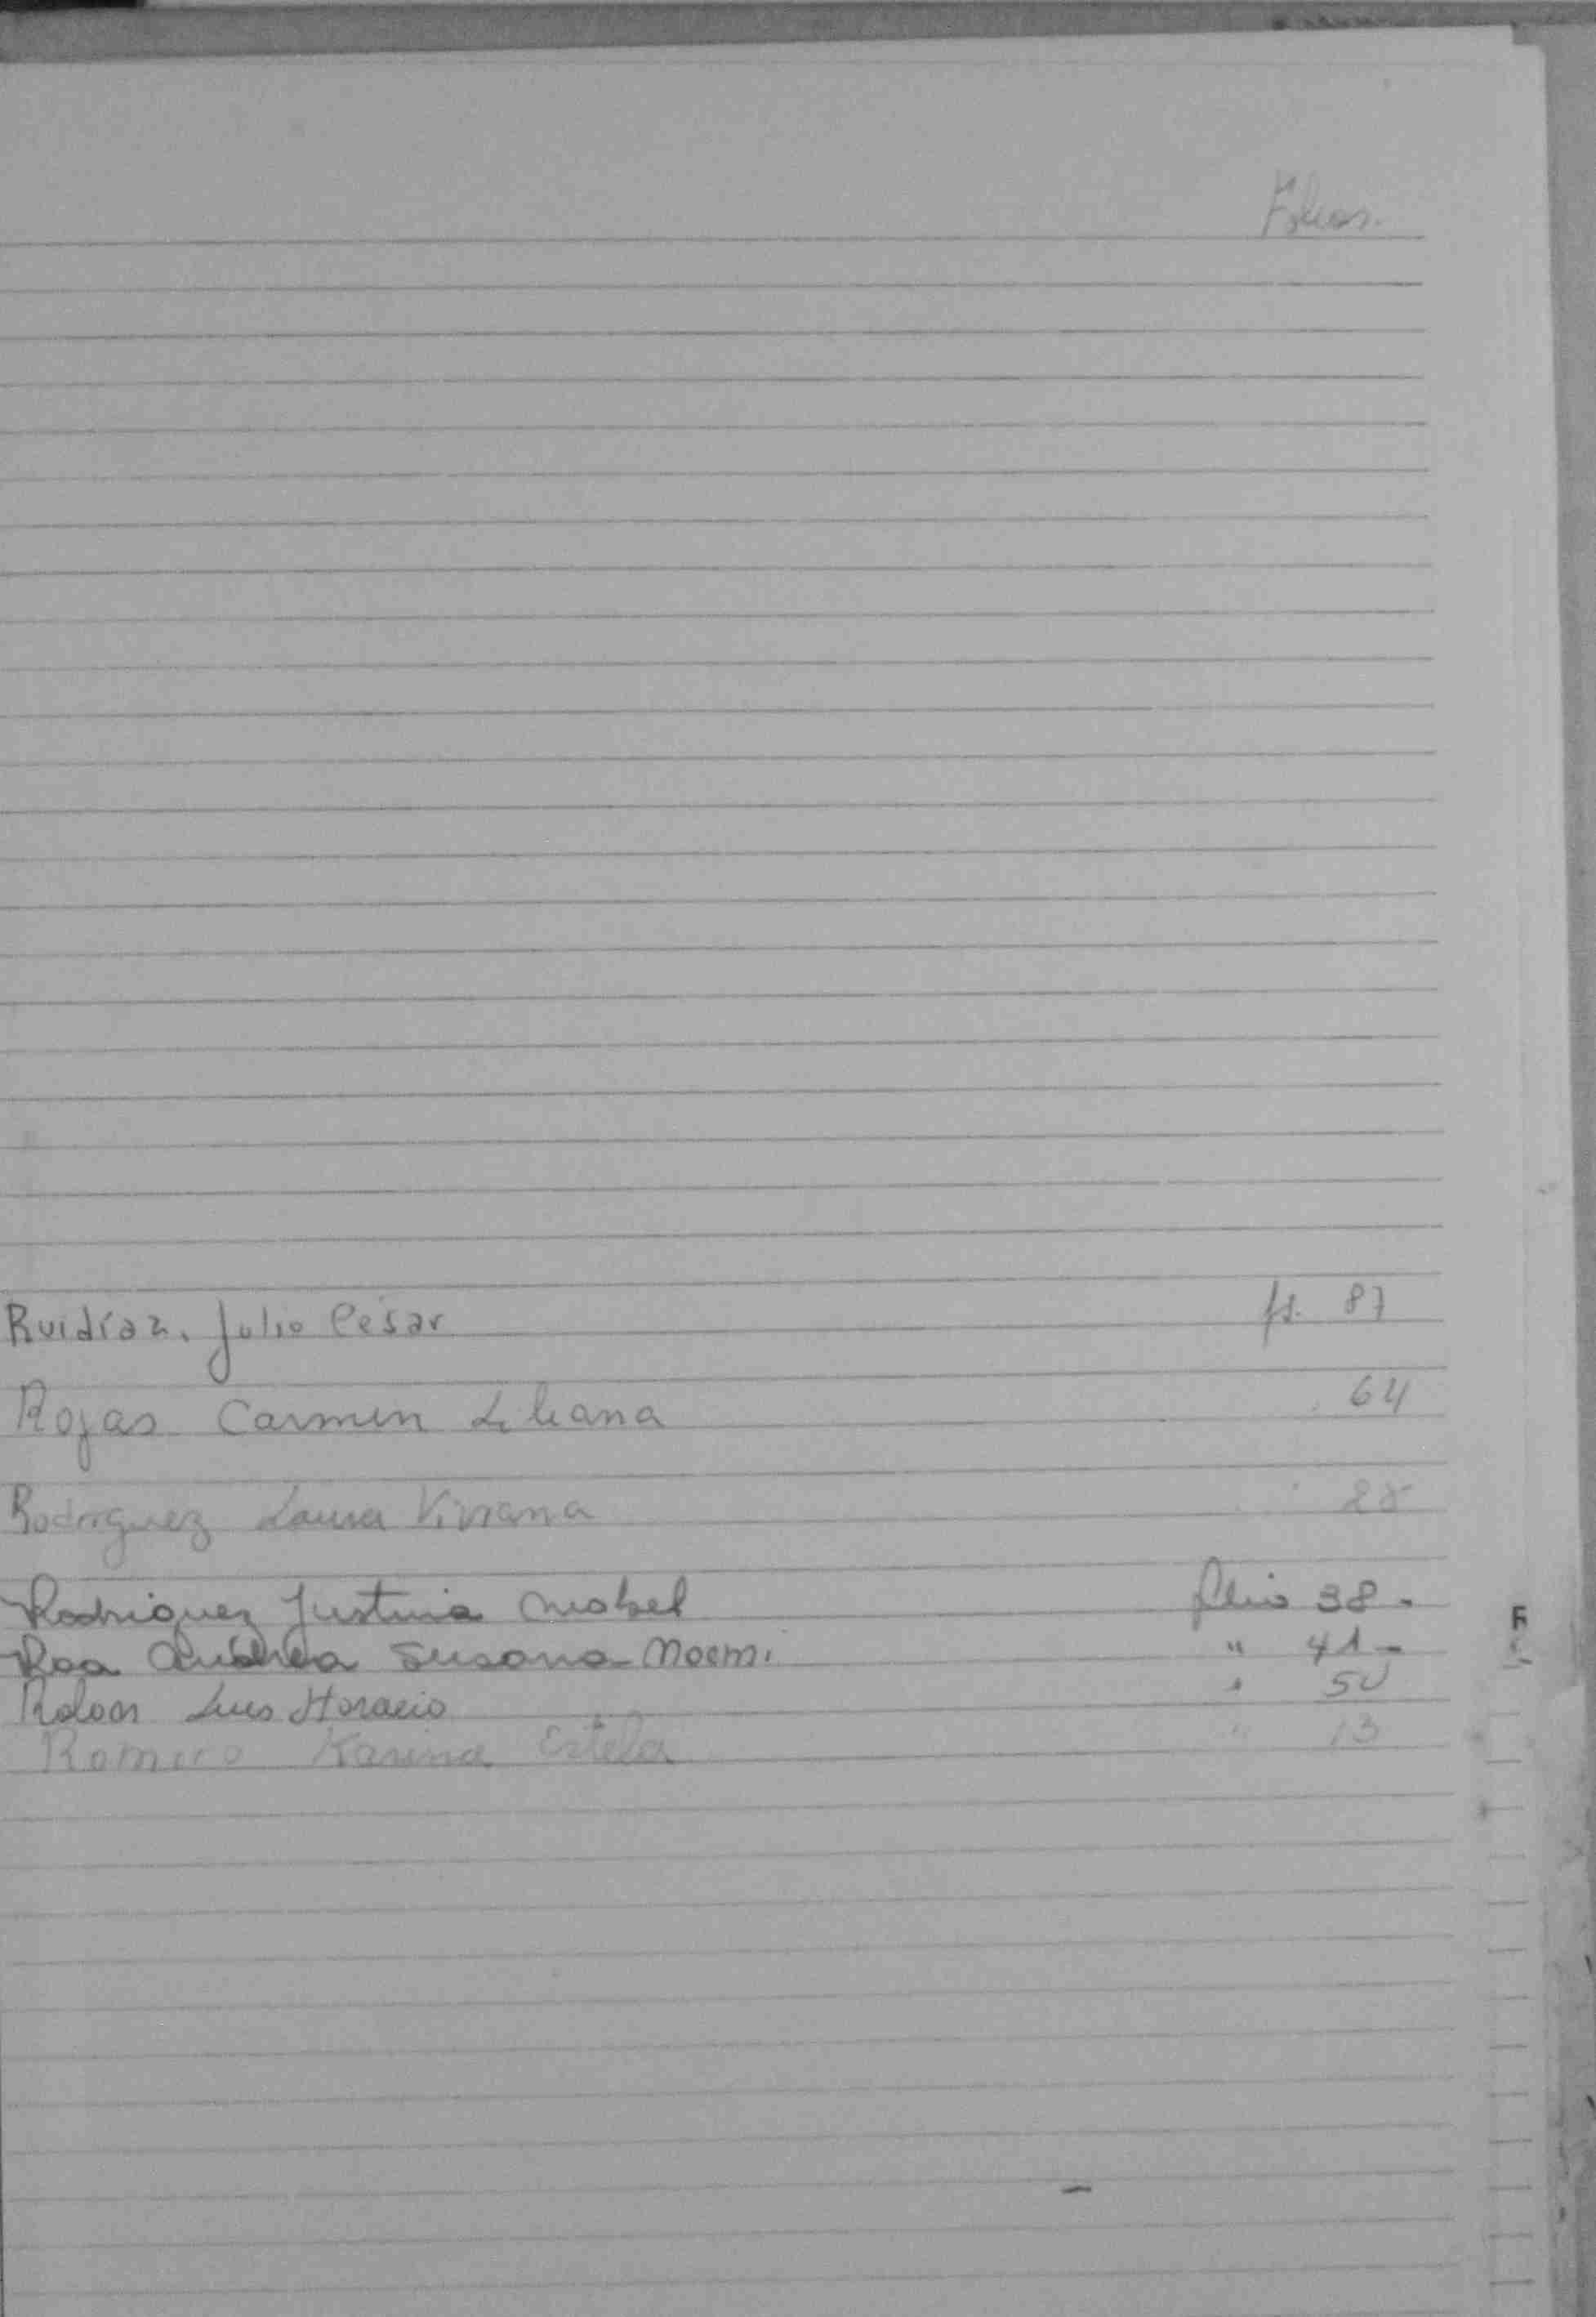 Folios.
Ruidíaz, Julio César fs. 87
Rojas Carmen Liliana 64
Rodriguez Laura Viviana 28
Rodriguez Justina Mabel folio 38.
Roa Andrea Susana Noemi " 41-
Rolon Luis Horacio " 50
Romero Karina Estela " 13
F